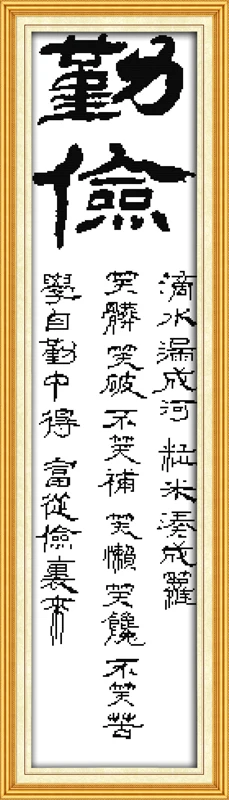 勤儉
滴水漏成河 粒米湊成籮
笑髒笑破不笑補 笑懶笑饞不笑苦
學自勤中得 富從儉裏來